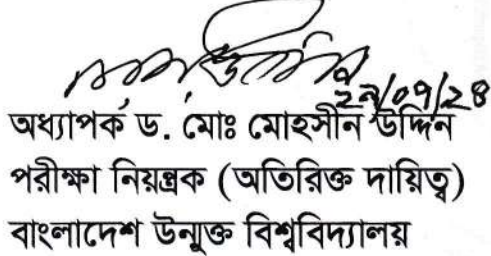 ২৯/০৭/২৪
অধ্যাপক ড. মোঃ মোহসীন উদ্দিন
পরীক্ষা নিয়ন্ত্রক (অতিরিক্ত দায়িত্ব)
বাংলাদেশ উন্মুক্ত বিশ্ববিদ্যালয়